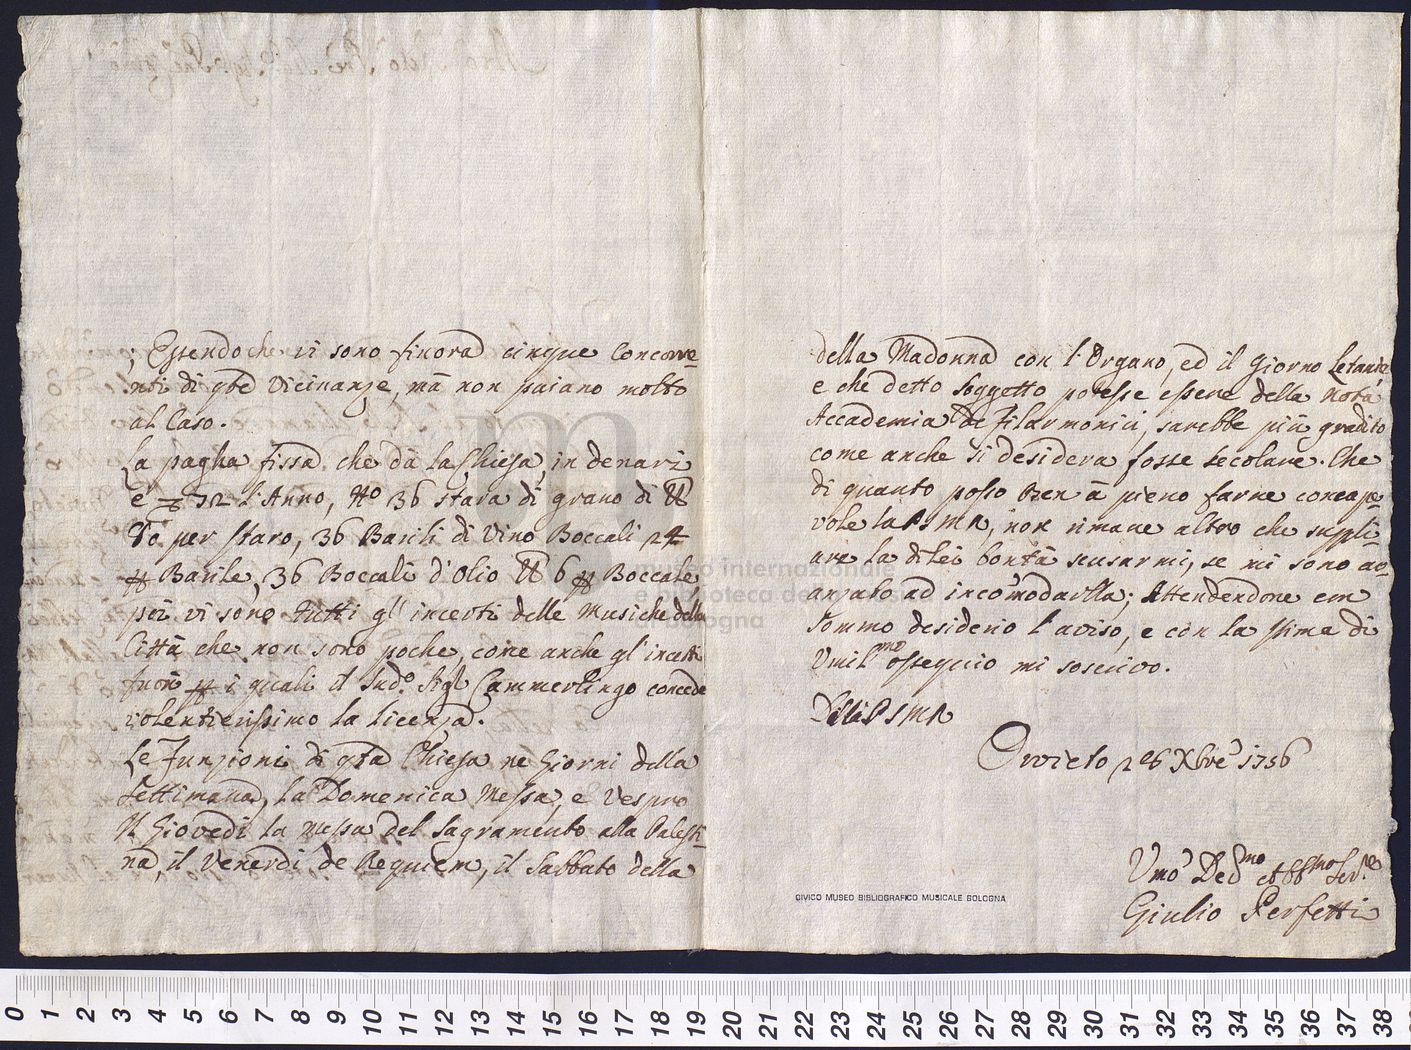 ; Essendoche vi sono finora cinque Concorre-
nti di qste Vicinanze, mà non paiano molto
al Caso.
La pagha fissa che dà la Chiesa in denari
è 32 l'Anno, No 36 stara di grano di
per staro, 36 Barili di Vino Boccali 24
Barile, 36 Boccali d'Olio 6 Boccale
poi vi sono tutti gl' incerti delle Musiche della
Città che non sono poche, come anche gl'incerti
fuori i quali il Sudo. Sigl Cammerlingo concede
volentierissimo la licenza.
Le Funzioni di qsta Chiesa ne Giorni della
Settimana, la Domenica Messa, e Vespro
Il Giovedì la Messa del Sagramento alla Palesti-
na, il Venerdì de Requiem, il Sabbato della
della Madonna con l'Organo, ed il Giorno Letanie
e che detto Soggetto potesse essere della Nota
Accademia de Filarmonici, sarebbe più gradito
come anche si desidera fosse secolare. Che
di quanto posso Ben à pieno farne consape-
vole la P S M R, non rimane altro che suppli-
are la di Lei bontà scusarmi, se mi sono av-
anzato ad incomodarlla; Attendendone con
Sommo desiderio l'aviso, e con la stima di
Umilmo ossequio mi soscrivo.
Della P S M R
Orvieto 26 Xbre 1756
Umo Dedmo et Obbmo Serre
Giulio Perfetti
CIVICO MUSEO BIBLIOGRAFICO MUSICALE BOLOGNA
museo internazionale
e biblioteca della musica
bologna
0 1 2 3 4 5 6 7 8 9 10 11 12 13 14 15 16 17 18 19 20 21 22 23 24 25 26 27 28 29 30 31 32 33 34 35 36 37 38